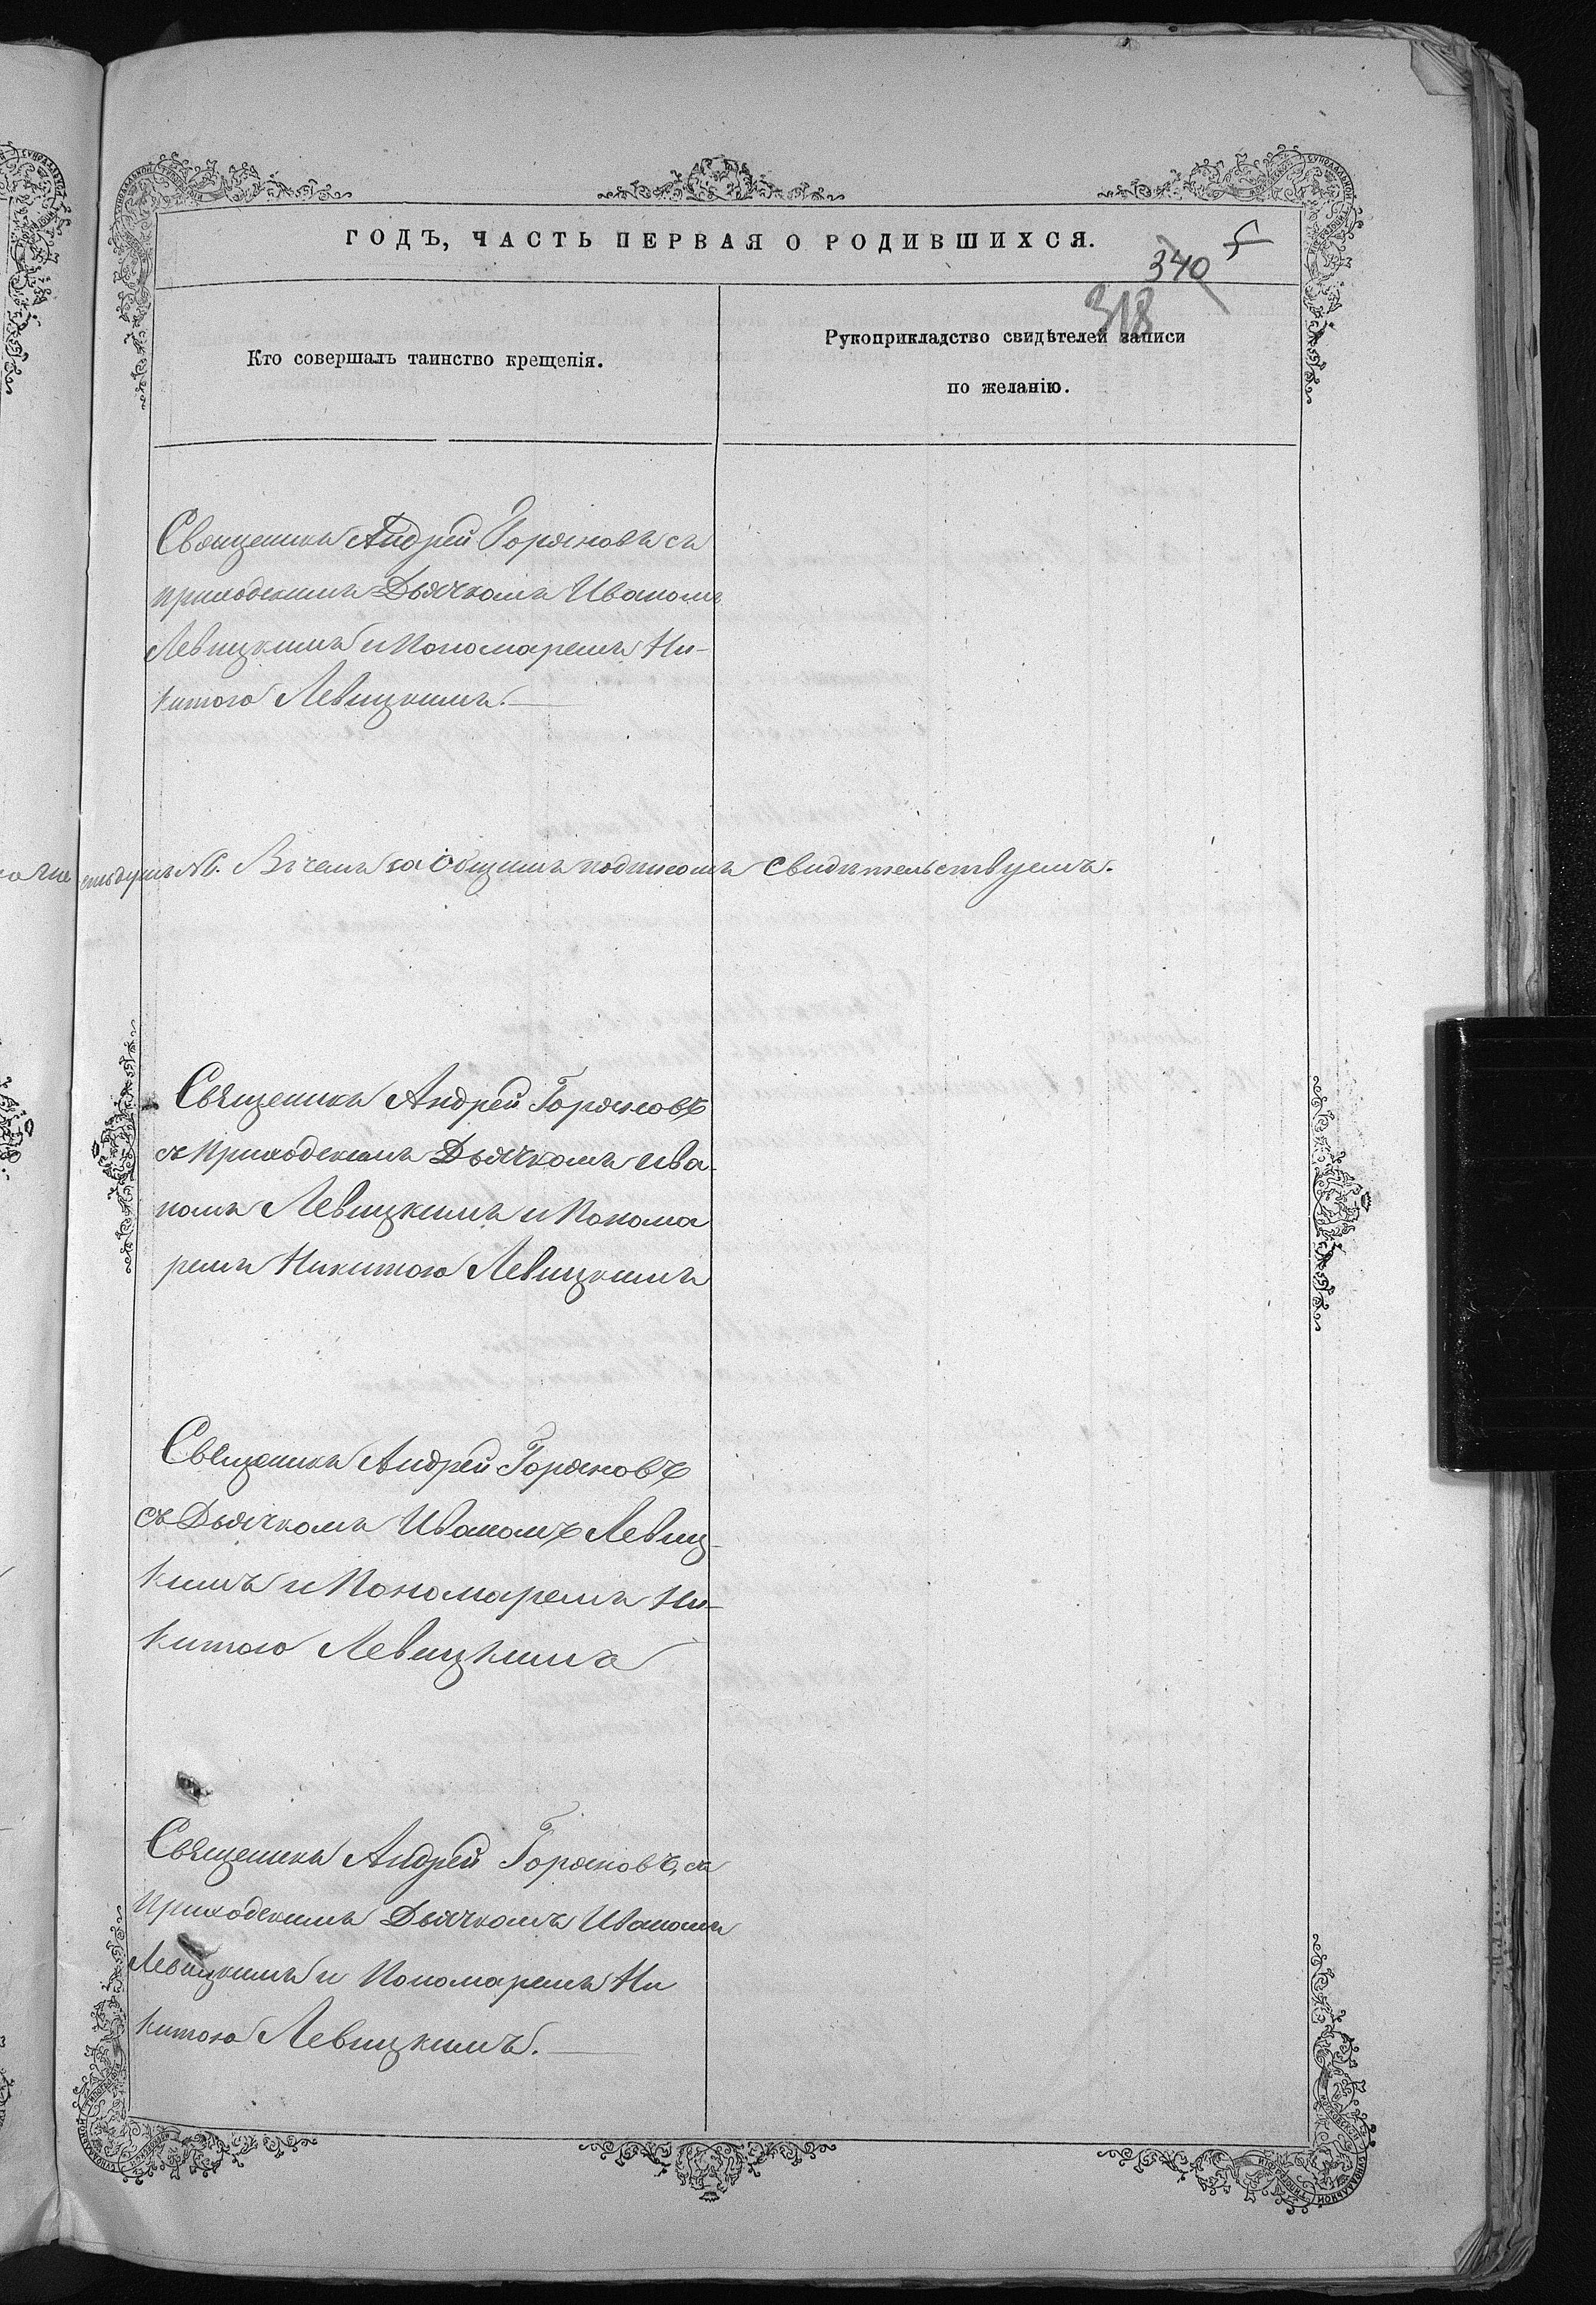 ГОДЪ, ЧАСТЬ ПЕРВАЯ О РОДИВШИХСЯ.
5
340
318
Кто совершалъ таинство крещенія.
Рукоприкладство свидѣтелей записи
по желанію.
Священикъ Андрей Горяновъ съ
приходскимъ Дьячкомъ Иваномъ
Левицкимъ и Пономаремъ Ни-
китою Левицкимъ.
Въ чемъ за общимъ подписомъ свидѣтельствуемъ.
Священикъ Андрей Горяновъ
съ Приходскимъ Дьячкомъ Ива-
номъ Левицкимъ и Понома
ремъ Никитою Левицкимъ
Священикъ Андрей Горяновъ
съ Дьячкомъ Иваномъ Левиц-
кимъ и Пономаремъ Ни-
китою Левицкимъ
Священикъ Андрей Горяновъ, съ
Приходскимъ Дьячкомъ Иваномъ
Левицкимъ и Пономаремъ Ни
китою Левицкимъ.